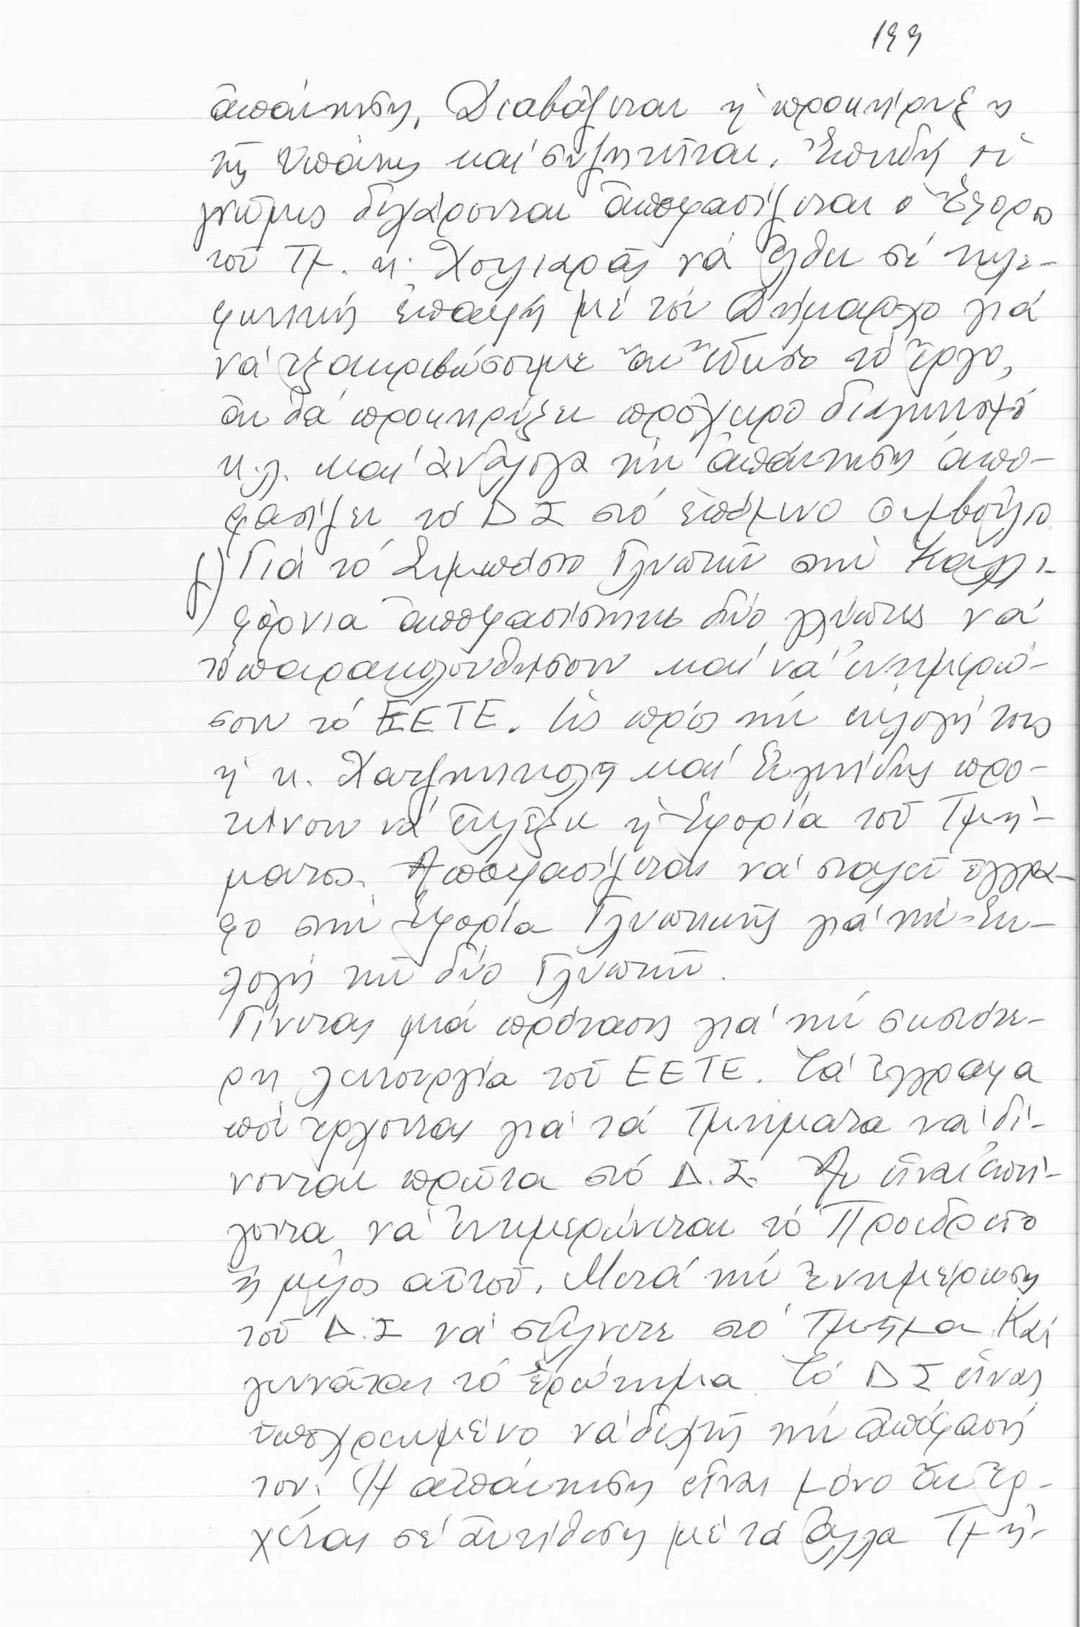 199
ἀπάντηση. Διαβάζεται ἡ προκήρυξη
τῆς Ὑπάτης καί συζητεῖται. Ἐπειδή οἱ
γνῶμες διχάζονται ἀποφασίζεται ὁ Ἔφορος
τοῦ Τμ. κ. Χουλιαρᾶς νά ἔλθει σέ τηλε-
φωνική ἐπαφή μέ τόν Δήμαρχο γιά
νά ἐξακριβώσουμε ἄν ἔδωσε τό ἔργο,
ἄν θά προκηρύξει πρόχειρο διαγωνισμό
κ.λ. καί ἀνάλογα τήν ἀπάντηση ἀπο-
φασίζει τό ΔΣ στό ἑπόμενο συμβούλιο
Γιά τό Συμπόσιο Γλυπτῶν στήν Καλι-
φόρνια ἀποφασίστηκε δύο γλύπτες νά
τό παρακολουθήσουν καί νά ἐνημερώ-
σουν τό ΕΕΤΕ. Ὡς πρός τήν ἐκλογή τους
ἡ κ. Χατζηνικολῆ καί προ-
τείνουν νά ἐκλέξει ἡ Ἐφορία τοῦ Τμή-
ματος. Ἀποφασίζεται νά σταλεῖ ἔγγρα-
φο στήν Ἐφορία Γλυπτικῆς γιά τήν ἐκ-
λογή τῶν δύο Γλυπτῶν.
Γίνεται μιά πρόταση γιά τήν σωστότε-
ρη λειτουργία τοῦ ΕΕΤΕ. Τά ἔγγραφα
πού ἔρχονται γιά τά Τμήματα νά δί-
νονται πρῶτα στό Δ.Σ. Ἄν εἶναι ἐπεί-
γοντα νά ἐνημερώνεται τό Προεδρεῖο
ἤ μέλος αὐτοῦ. Μετά τήν ἐνημέρωση
τοῦ Δ.Σ νά στέλνετε στό Τμῆμα. Καί
γεννᾶται τό ἐρώτημα. Τό ΔΣ εἶναι
ὑποχρεωμένο νά δεχτῆ τήν ἀπόφασή
του; Ἡ ἀπάντηση εἶναι μόνο ἄν ἔρ-
χεται σέ ἀντίθεση μέ τά ἄλλα Τμή-